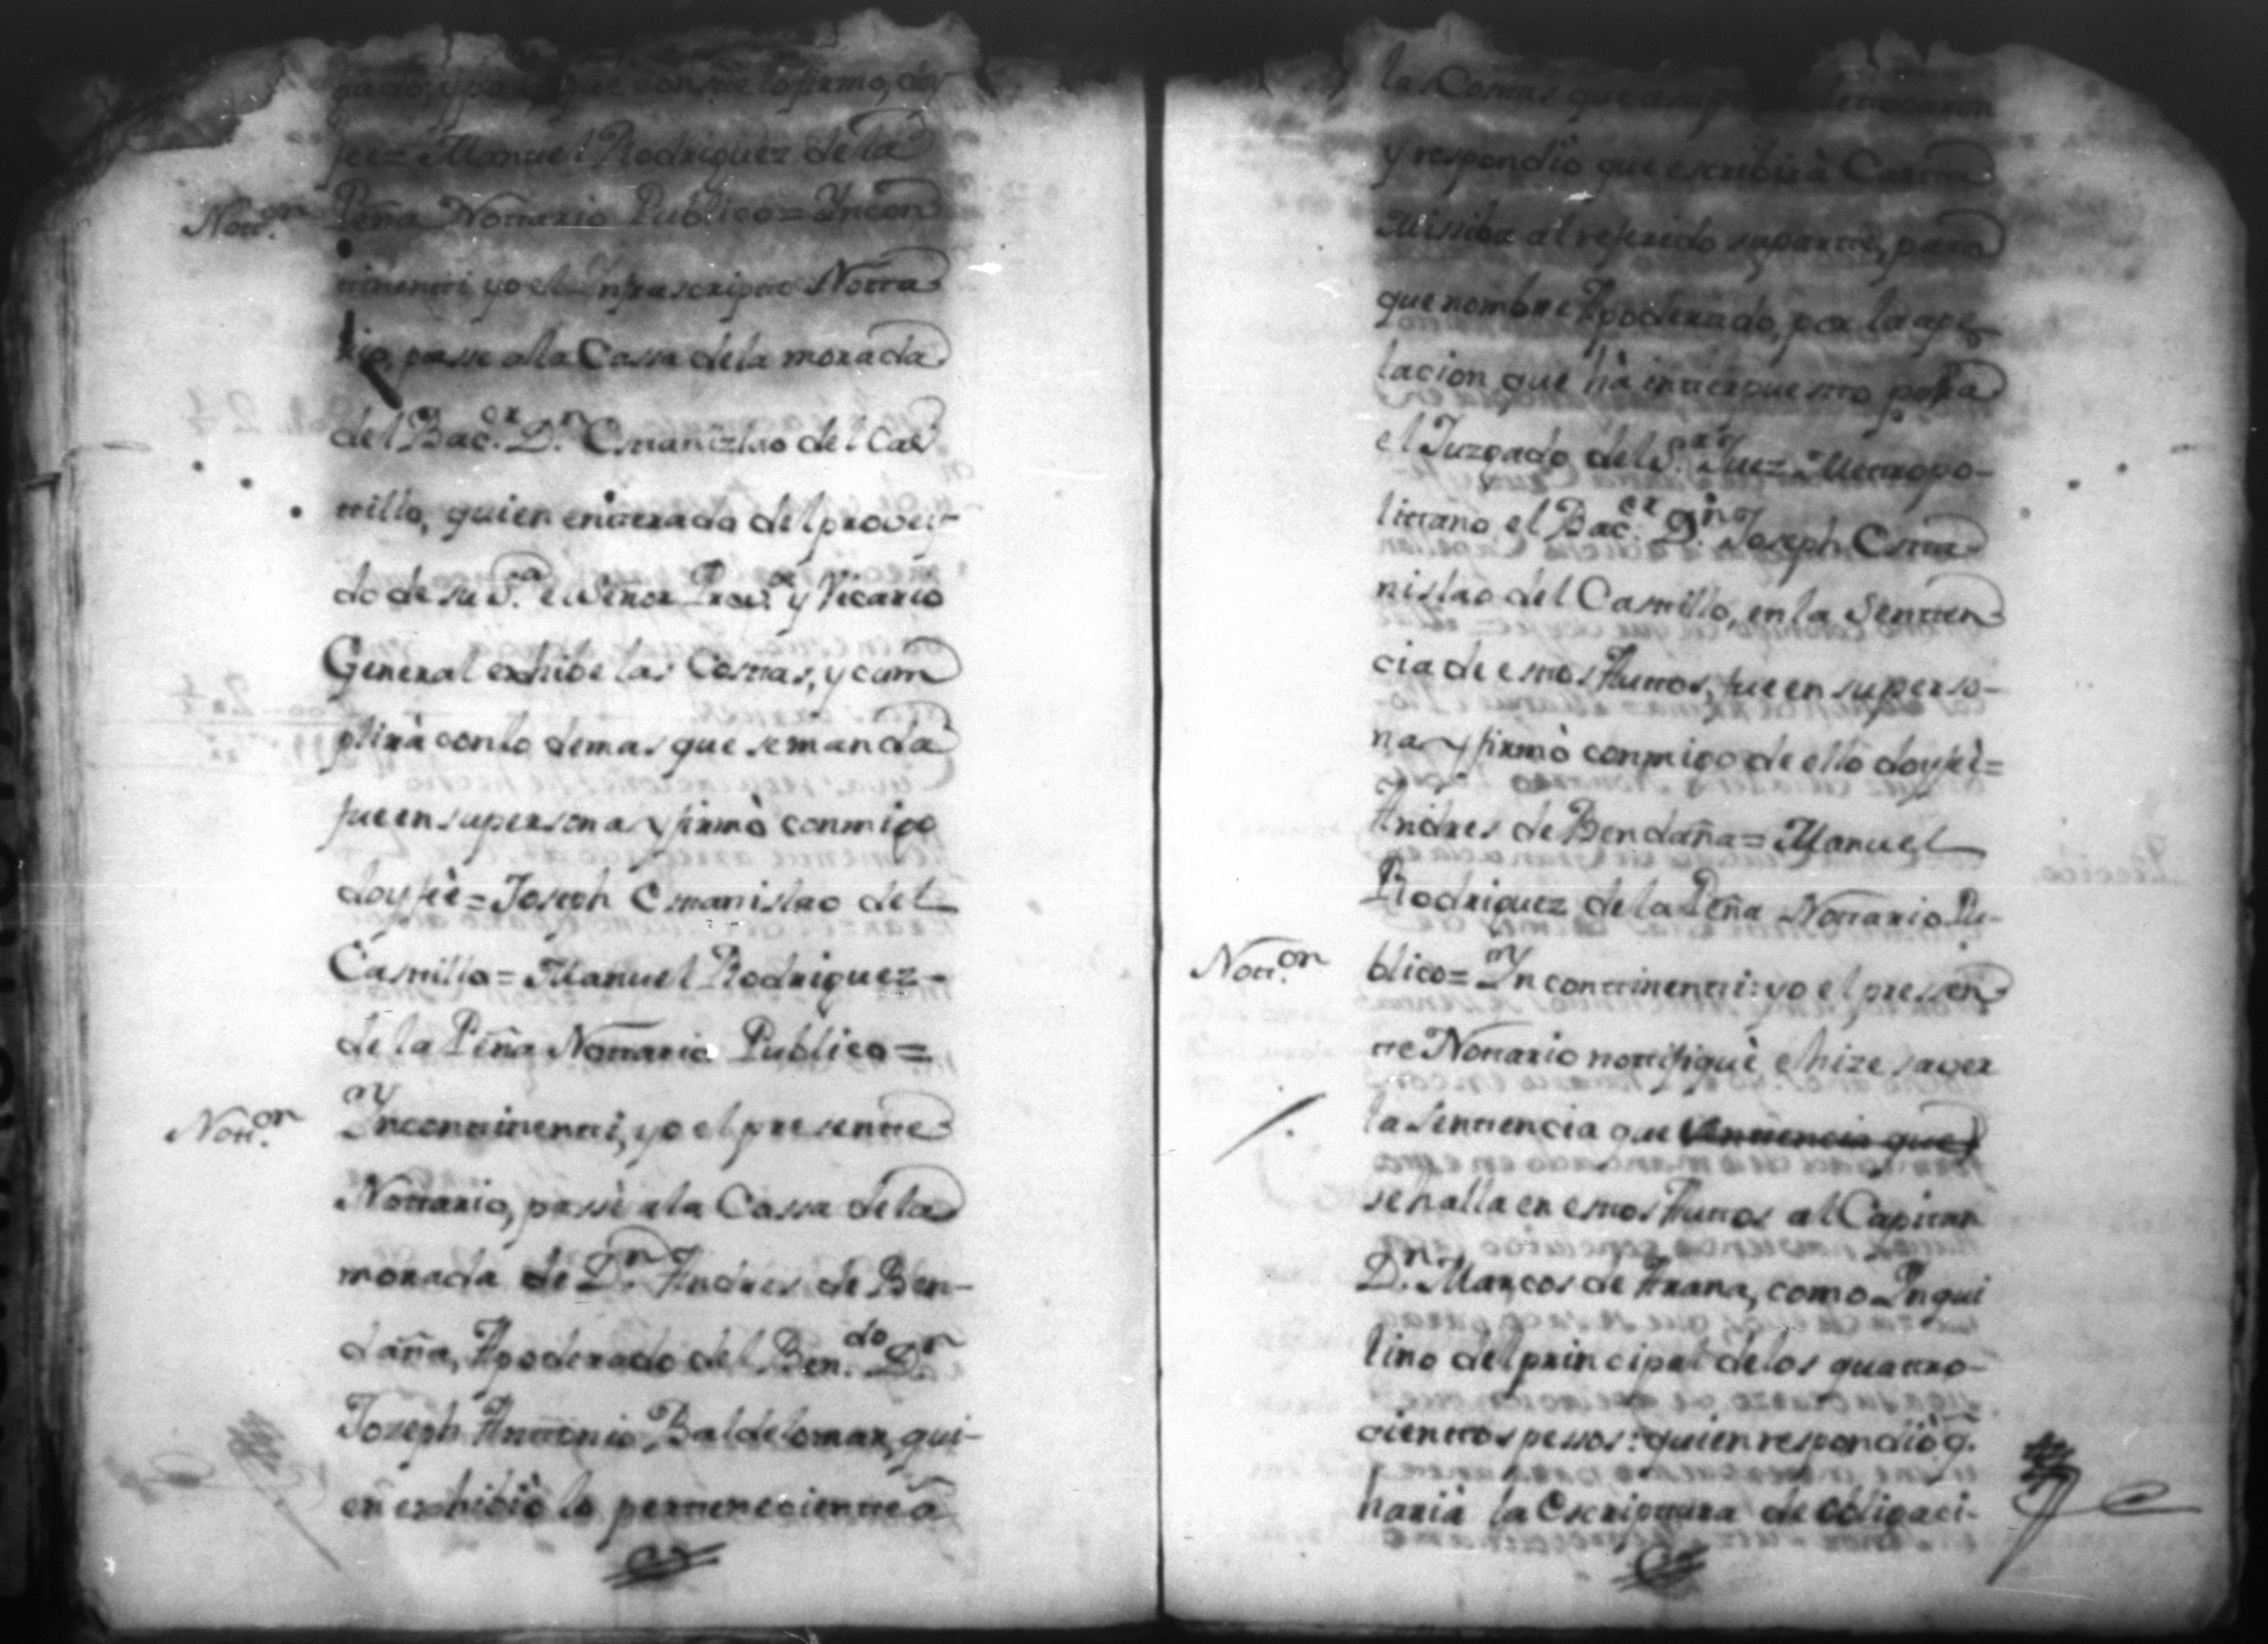 gado, y para que conste lo firmo, doy
feè = Manuel Rodriguez de la
Nott.on
Peña Nottario Publico = Yncon
ttinentti yo el Ynfrascripto Notta
rio, passe alla Cassa dela morada
del Bac.er D.n Esttanizlao del Cas
ttillo, quien entterado del provey-
do de su S.a el Señor Prov.or y Vicario
General exhibe las Costtas, y cum
plirà con lo demas que se manda
fue en su persona y firmò conmigo
doy feè = Joseph Esttanislao del
Casttillo = Manuel Rodriguez
de la Peña Nottario Publico =
Nott.on
Yncontinentti, yo el presentte
Nottario, passè ala Cassa dela
morada de D.n Andres de Ben-
daña, Apoderado del Ben.do D.n
Jozeph Anttonio Baldelomar, qui-
en exhibiò lo pertteneciente à
las Costtas que a su
y respondiò que escribirà Cartta
missiba al referido su partte, para
que nombre Apoderado, por la ape-
lacion que hà interpuestto para
el Juzgado del S.or Juez Mettropo-
littano el Bac.er D.n Joseph Estta
nislao del Casttillo, en la Senten
cia de esttos Auttos, fue en su perso-
na y firmò conmigo de ello doy feè =
Andres de Bendaña = Manuel
Rodriguez de la Peña Nottario Pu-
Nott.on
blico = Yn conttinentti: yo el pressen
tte Nottario nottifiquè è hize saver
la Senttencia que Senttencia que
se halla en esttos Auttos al Capittan
D.n Marcos de Arana, como Ynqui
lino del principal de los quattro-
cienttos pessos: quien respondiò q.
harià la Escripttura de obligaci-